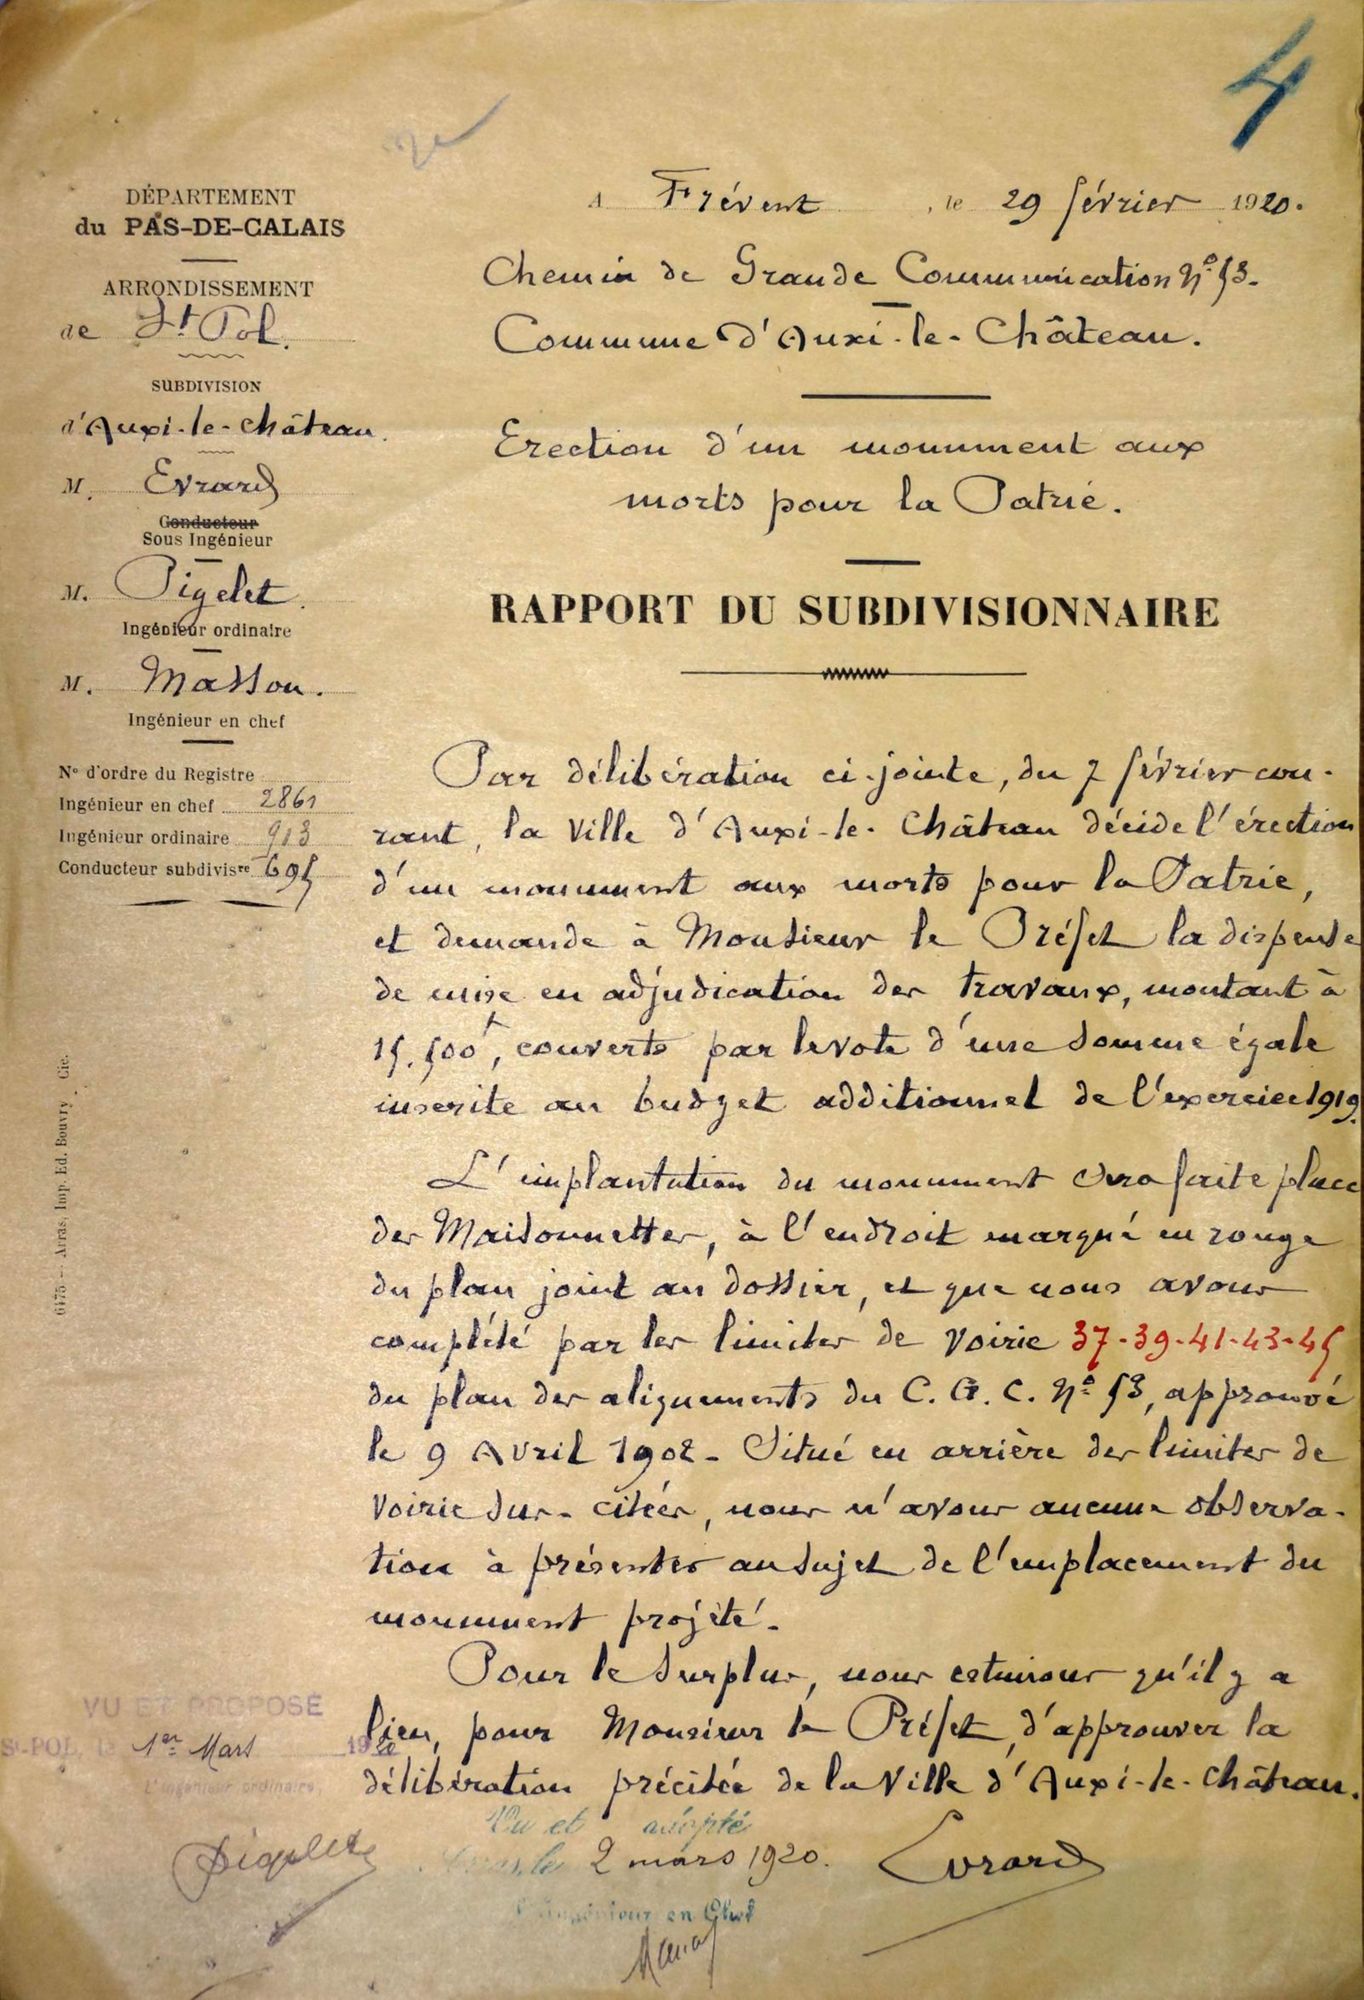 4
DÉPARTEMENT
du PAS-DE-CALAIS
ARRONDISSEMENT
de St Pol.
SUBDIVISION
d'Auxi-le-Château.
M. Evrard
Conducteur
Sous Ingénieur
M. Pigelet.
Ingénieur ordinaire
M. Masson.
Ingénieur en chef
No d'ordre du Registre
Ingénieur en chef 2861
Ingénieur ordinaire 913
Conducteur subdivisre 695
6475 — Arras, Imp. Ed. Bouvry, Cie.
A Frévent, le 29 février 1920.
Chemin de Grande Communication No 53.
Commune d'Auxi-le-Château.
Erection d'un monument aux
morts pour la Patrie.
RAPPORT DU SUBDIVISIONNAIRE
Par délibération ci-jointe, du 7 février cou-
rant, la Ville d'Auxi-le-Château décide l'érection
d'un monument aux morts pour la Patrie,
et demande à Monsieur le Préfet la dispense
de mise en adjudication des travaux, montant à
15.500f, couverts par le vote d'une somme égale
inscrite au budget additionnel de l'exercice 1919.
L'implantation du monument sera faite place
des Maisonnettes, à l'endroit marqué en rouge
du plan joint au dossier, et que nous avons
complété par les limites de voirie 37-39-41-43-45
du plan des alignements du C. G. C. No 53, approuvé
le 9 Avril 1902 - Situé en arrière des limites de
Voirie sur-citées, nous n'avons aucune observa-
tion à présenter au sujet de l'emplacement du
monument projeté.-
Pour le surplus, nous estimons qu'il y a
lieu, pour Monsieur le Préfet, d'approuver la
délibération précitée de la Ville d'Auxi-le-Château.
VU ET PROPOSÉ
St-POL, le 1er Mars 1920
L'Ingénieur ordinaire,
Pigelet
Vu et adopté
Arras, le 2 mars 1920.
L'Ingénieur en Chef
Evrard